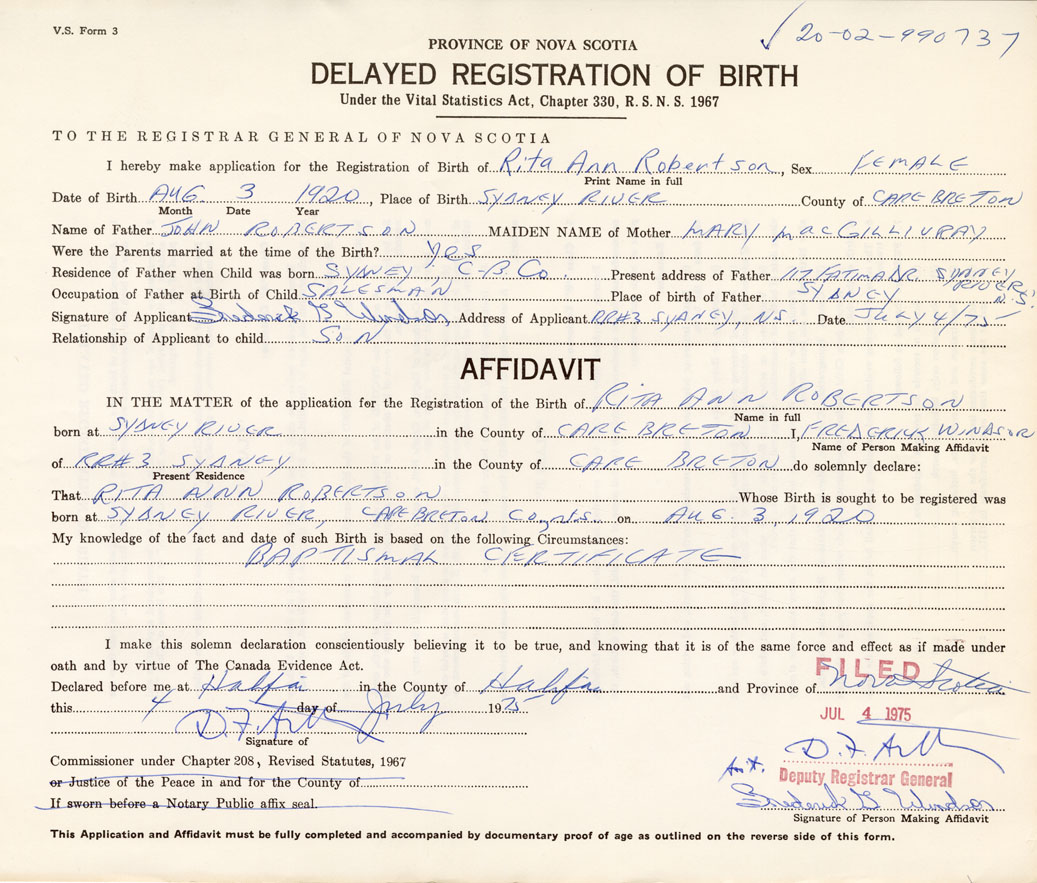 V.S. Form 3
20-02-990737
PROVINCE OF NOVA SCOTIA
DELAYED REGISTRATION OF BIRTH
Under the Vital Statistics Act, Chapter 330, R.S.N.S. 1967
TO THE REGISTRAR GENERAL OF NOVA SCOTIA
I hereby make application for the Registration of Birth of Rita Ann Robertson, Sex FEMALE
Print Name in full
Date of Birth AUG. 3 1920, Place of Birth SYDNEY RIVER County of CAPE BRETON
Month Date Year
Name of Father JOHN ROBERTSON MAIDEN NAME of Mother MARY MACGILLIVRAY
Were the Parents married at the time of the Birth? Yes
Residence of Father when Child was born SYDNEY, C-B. Co Present address of Father 117 FATIMA DR. SYDNEY RIVER N.S.
Occupation of Father at Birth of Child SALESMAN Place of birth of Father SYDNEY
Signature of Applicant Frederick G Windsor Address of Applicant RR#3 SYDNEY, N.S. Date JULY 4/75
Relationship of Applicant to child SON
AFFIDAVIT
IN THE MATTER of the application for the Registration of the Birth of RITA ANN ROBERTSON
Name in full
born at SYDNEY RIVER in the County of CAPE BRETON I, FREDERICK WINDSOR
Name of Person Making Affidavit
of RR#3 SYDNEY in the County of CAPE BRETON do solemnly declare:
Present Residence
That RITA ANN ROBERTSON Whose Birth is sought to be registered was
born at SYDNEY RIVER, CAPE BRETON County N.S. on AUG. 3, 1920
My knowledge of the fact and date of such Birth is based on the following Circumstances:
BAPTISMAL CERTIFICATE
I make this solemn declaration conscientiously believing it to be true, and knowing that it is of the same force and effect as if made under
oath and by virtue of The Canada Evidence Act.
FILED
Declared before me at Halifax in the County of Halifax and Province of Nova Scotia
this 4 day of July 1975
JUL 4 1975
D. F. Arth
Signature of
D. F. Arth
Commissioner under Chapter 208, Revised Statutes, 1967
Deputy Registrar General
or Justice of the Peace in and for the County of
If sworn before a Notary Public affix seal.
Frederick G Windsor
Signature of Person Making Affidavit
This Application and Affidavit must be fully completed and accompanied by documentary proof of age as outlined on the reverse side of this form.